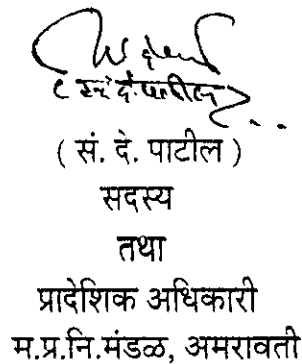 ( सं. दे. पाटील )
सदस्य
तथा
प्रादेशिक अधिकारी
म.प्र.नि.मंडळ, अमरावती